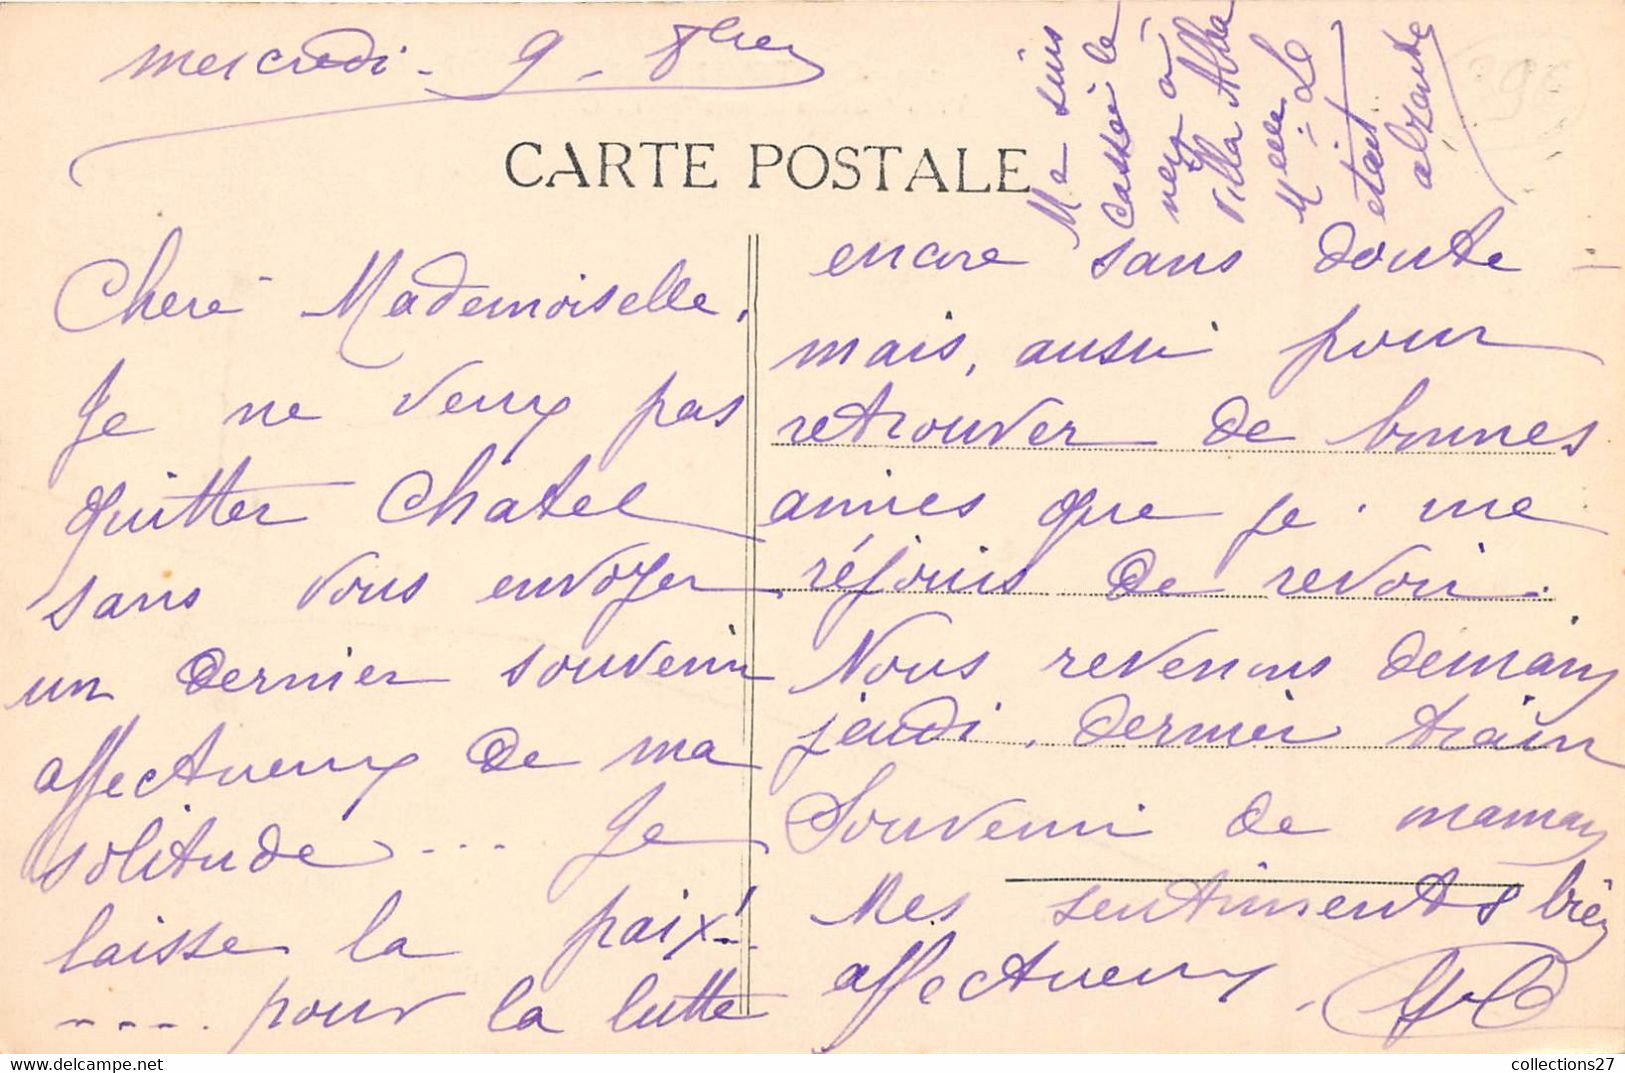 mercredi - 9 - 8bre
Me suis
cassé le
nez à
Villa Alba
Melle Le
étant
absente
CARTE POSTALE
Chere Mademoiselle,
Je ne veux pas
quitter Chatel
sans vous envoyer
un dernier souvenir
affectueux de ma
solitude .... Je
laisse la paix! ..
.... pour la lutte
encore sans doute -
mais, aussi pour
retrouver de bonnes
amies que je me
réjouis de revoir.
Nous revenons demain
jeudi, dernier train
Souvenir de maman
Mes sentiments bien
affectueux.
collections27